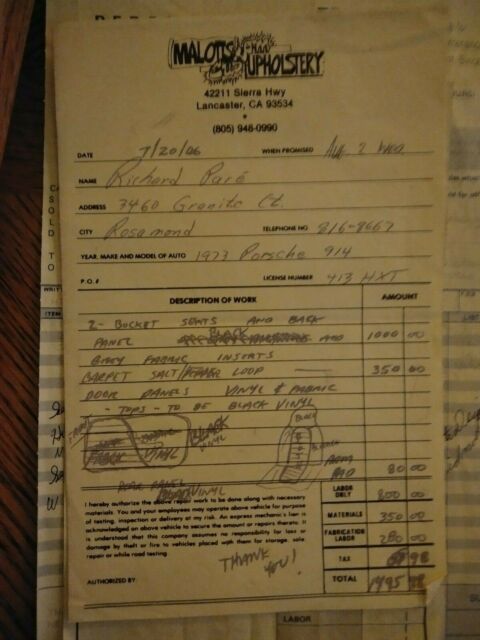 MALOTTS
UPHOLSTERY
42211 Sierra Hwy
Lancaster, CA 93534
(805) 948-0990
DATE 7/20/06 WHEN PROMISED Aug 2 Wed
NAME Richard Paré
ADDRESS 3460 Granite Ct.
CITY Rosamond TELEPHONE NO 816-8667
YEAR, MAKE AND MODEL OF AUTO 1973 Porsche 914
P.O.# LICENSE NUMBER 413 HXT
DESCRIPTION OF WORK AMOUNT
2- BUCKET SEATS AND BACK
PANEL BLACK AND 1000 00
GREY FABRIC INSERTS
CARPET SALT/PEPPER LOOP 350 00
DOOR PANELS VINYL & FABRIC
- TOPS - TO BE BLACK VINYL
BLACK
VINYL
FABRIC VINYL
80 00
REAR PANEL
VINYL
I hereby authorize the above repair work to be done along with necessary
materials. You and your employees may operate above vehicle for purpose
of testing, inspection or delivery at my risk. An express mechanic's lien is
acknowledged on above vehicle to secure the amount or repairs thereto. It
is understood that this company assumes no responsibility for loss or
damage by theft or fire to vehicles placed with them for storage, sale,
repair or while road testing.
THANK
YOU!
AUTHORIZED BY:
LABOR
ONLY 800 00
MATERIALS 350 00
FABRICATION
LABOR 280 00
TAX 98
TOTAL 1495 98
LABOR